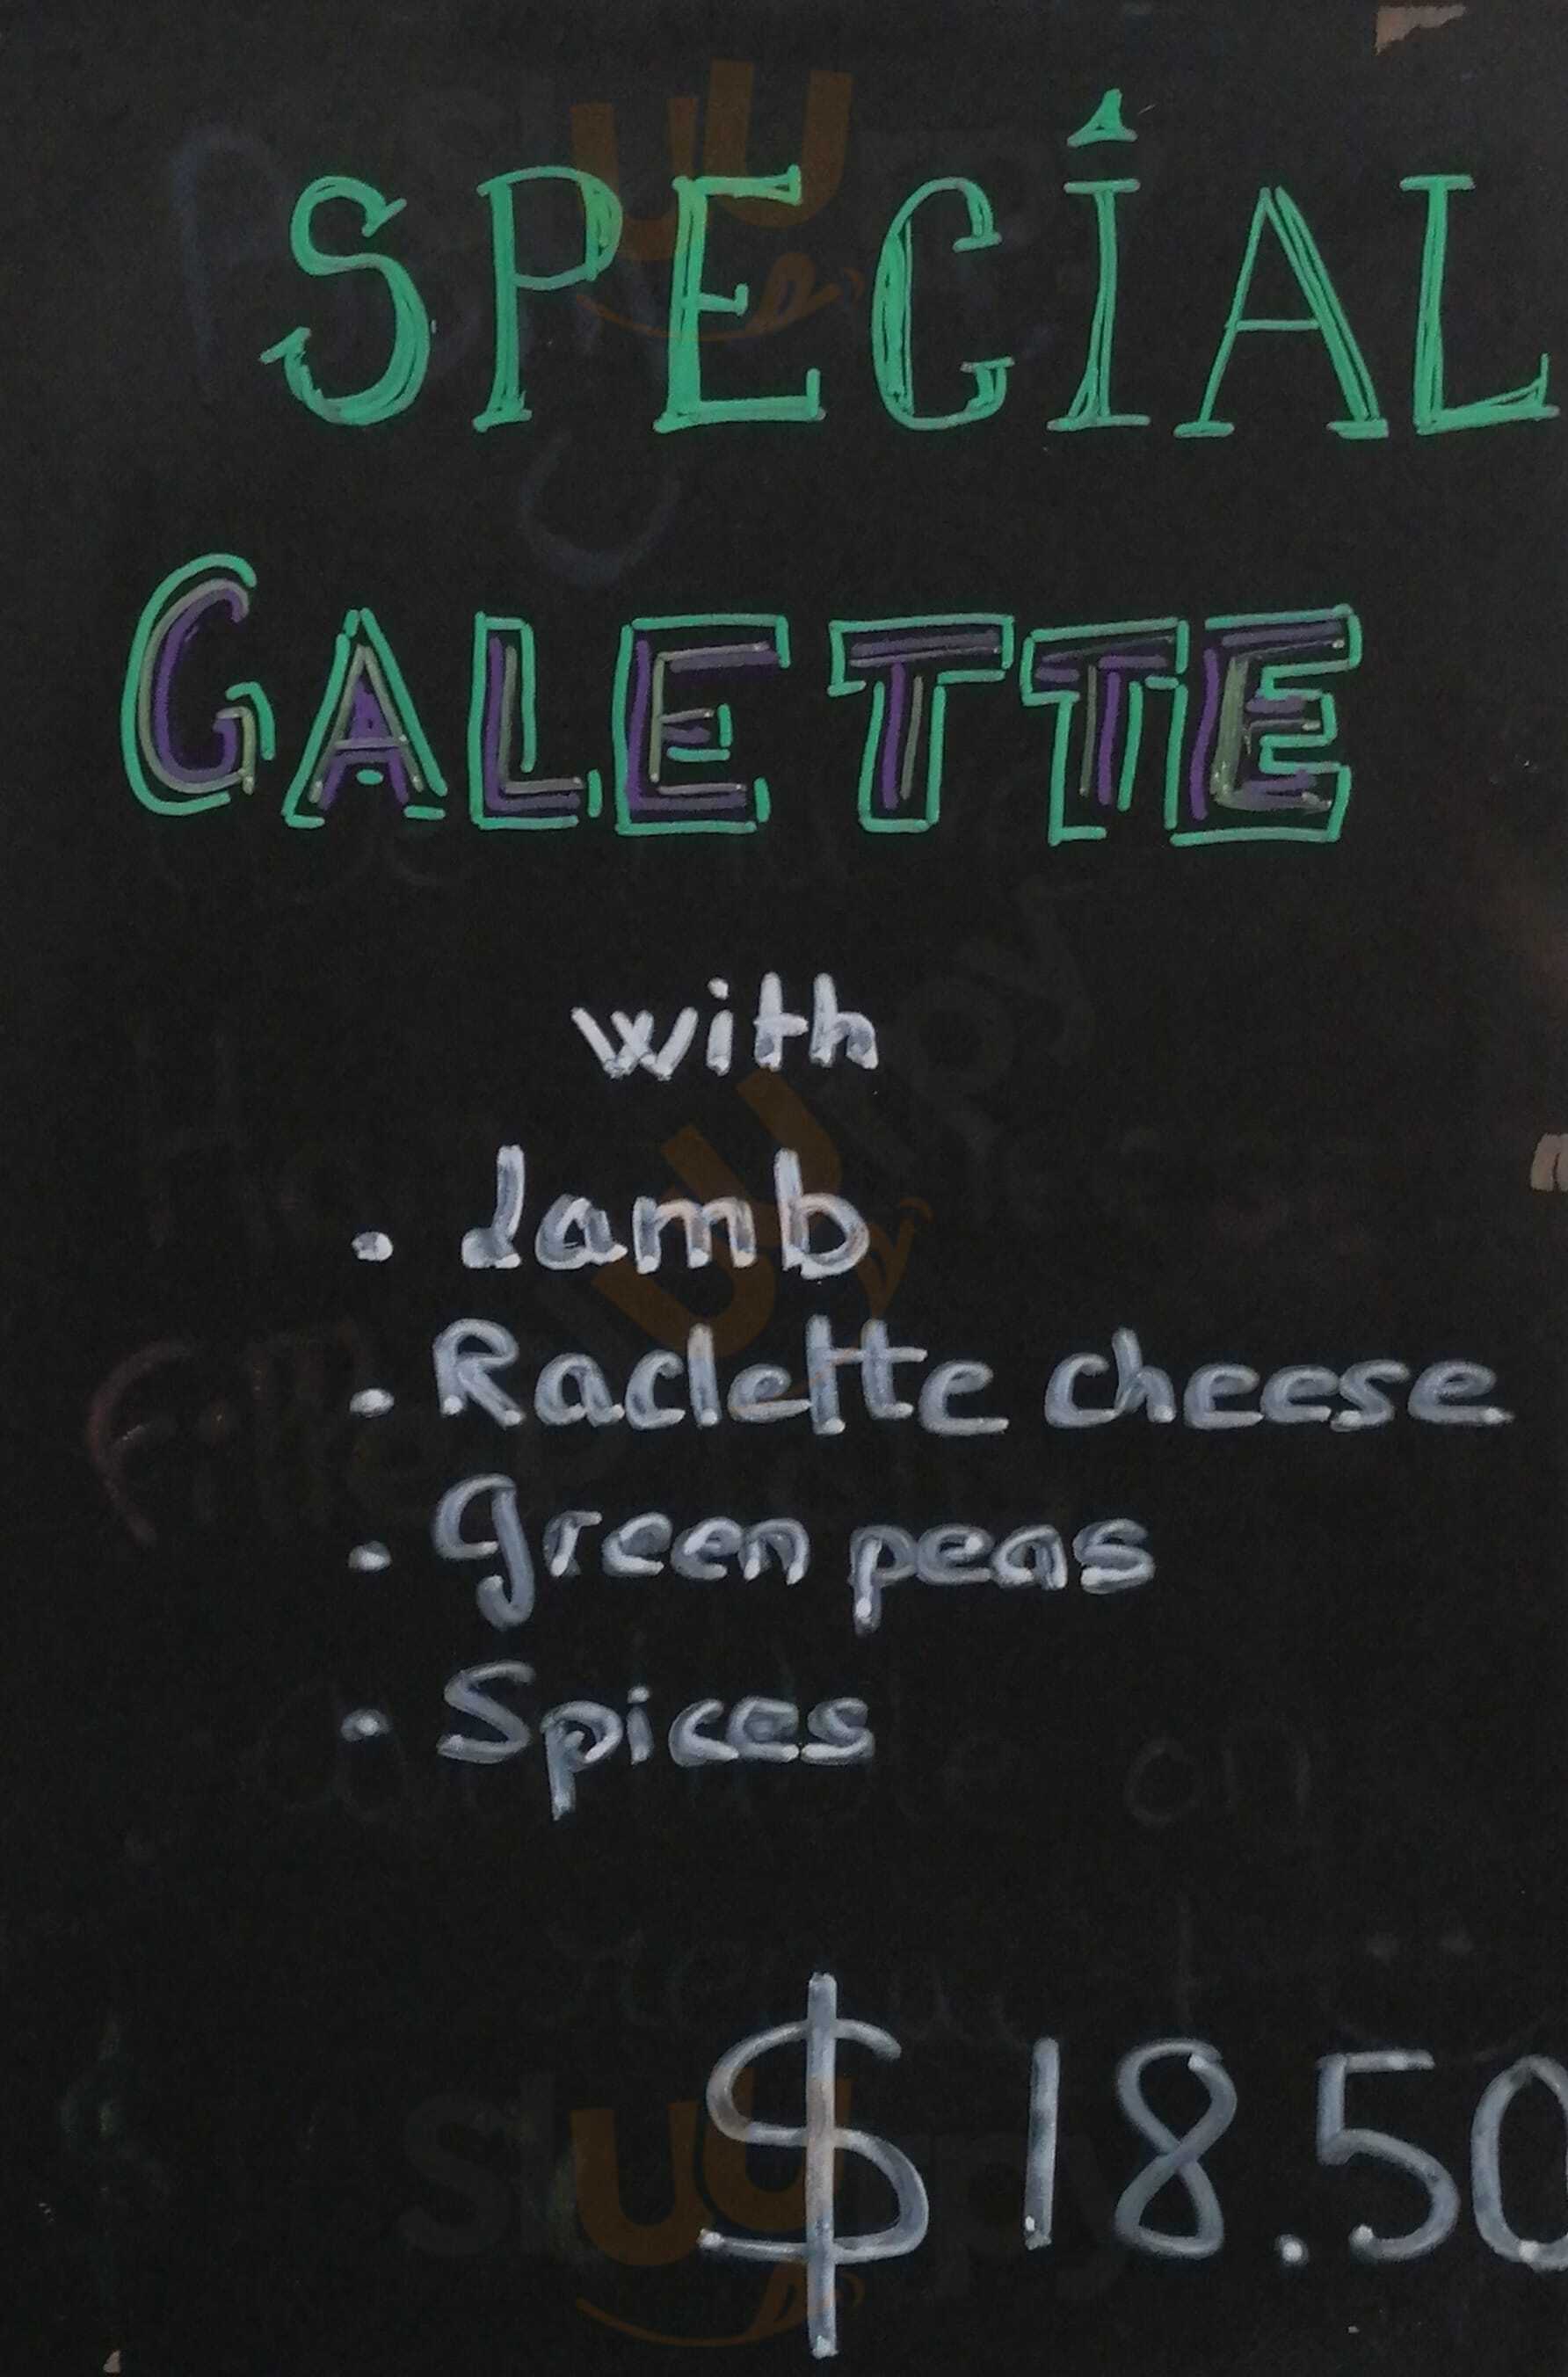 SPECIAL
GALETTE
with
• Lamb
• Raclette cheese
• Green peas
• Spices
$18.50